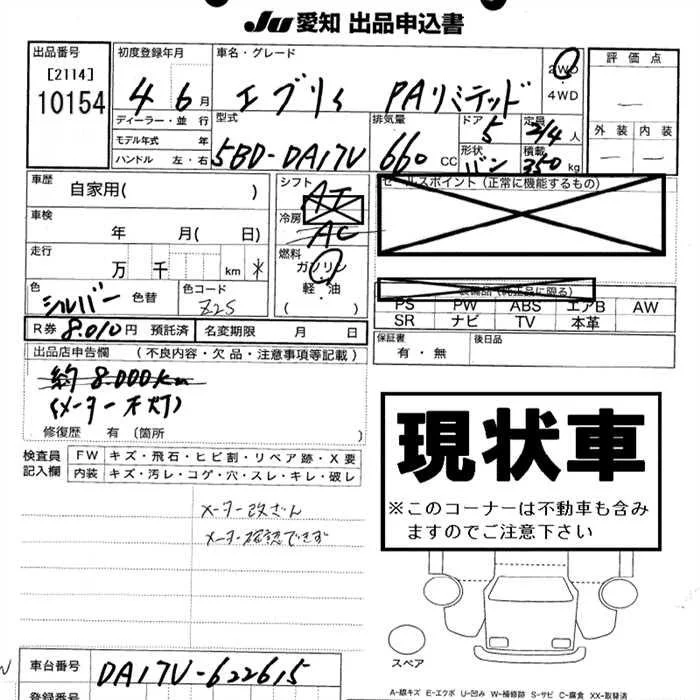 Ju 愛知 出品申込書
出品番号
[2114]
10154
初度登録年月
4 6月
ディーラー・並行
モデル年式 年
ハンドル 左・右
車名・グレード
エブリィ PAリミテッド
2WD
・
4WD
型式
5BD-DA17V
排気量
660 CC
ドア
5
定員
2/4人
形状
バン
積載
350kg
評価点
—
外装 内装
— —
車歴
自家用( )
車検
年 月( 日)
走行
万 千 km *
色
シルバー 色替
色コード
Z2S
シフト
AT
冷房
AC
燃料
ガソリン
・
軽・油
( )
セールスポイント(正常に機能するもの)
装備品(純正品に限る)
PS PW ABS エアB AW
SR ナビ TV 本革
保証書
有・無
後日品
R券 8.010円 預託済 名変期限 月 日
出品店申告欄 (不良内容・欠品・注意事項等記載)
約 8.000km
(メーター不灯)
修復歴 有 (箇所 )
検査員
記入欄
FW キズ・飛石・ヒビ割・リペア跡・X要
内装 キズ・汚レ・コゲ・穴・スレ・キレ・破レ
メーター改ざん
メーター確認できず
現状車
※このコーナーは不動車も含み
ますのでご注意下さい
スペア
車台番号
DA17V-622615
登録番号
A-線キズ E-エクボ U-凹み W-補修跡 S-サビ C-腐食 XX-取替済